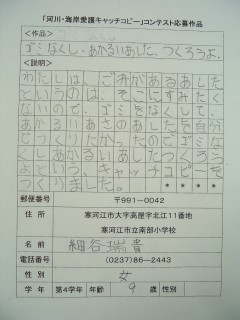 「河川・海岸愛護キャッチコピー」コンテスト応募作品
<作品>
ゴミなくし、あかるいあした、つくろうよ。
<説明>
わたしは、ごみがあるあした
というのは、そこにすみたく
ないので、きれいで
あかるいあきのあしたを自分
でつくりたかったのでゴミな
くしあかるいあしたつくろう
よという、キャッチコピーを
つくりました。 * * * *
郵便番号 〒991-0042
住所 寒河江市大字高屋字北江11番地
寒河江市立南部小学校
名前 細谷瑞貴
電話番号 (0237)86-2443
性別 女
学年 第4学年 年齢 9 歳 性別